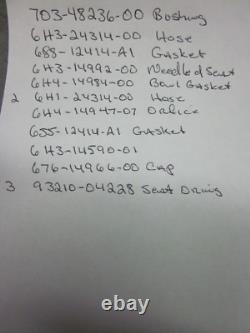 703-48236-00 Bushing
6H3-24314-00 Hose
688-12414-A1 Gasket
6H3-14992-00 Needle & Seat
6H4-14984-00 Bowl Gasket
2 6H1-24314-00 Hose
6H4-14947-07 Orifice
655-12414-A1 Gasket
6H3-14590-01
676-14966-00 Cap
3 93210-04228 Seat Oring
© ebay